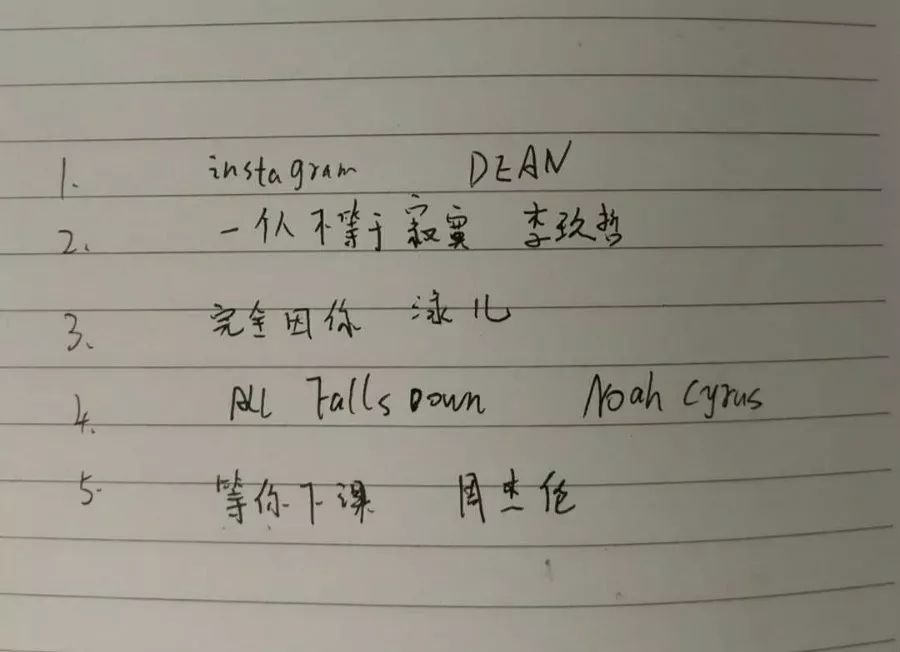 1. instagram DEAN
2. 一个人不等于寂寞 李玖哲
3. 完全因你 泳儿
4. All Falls Down Noah Cyrus
5. 等你下课 周杰伦